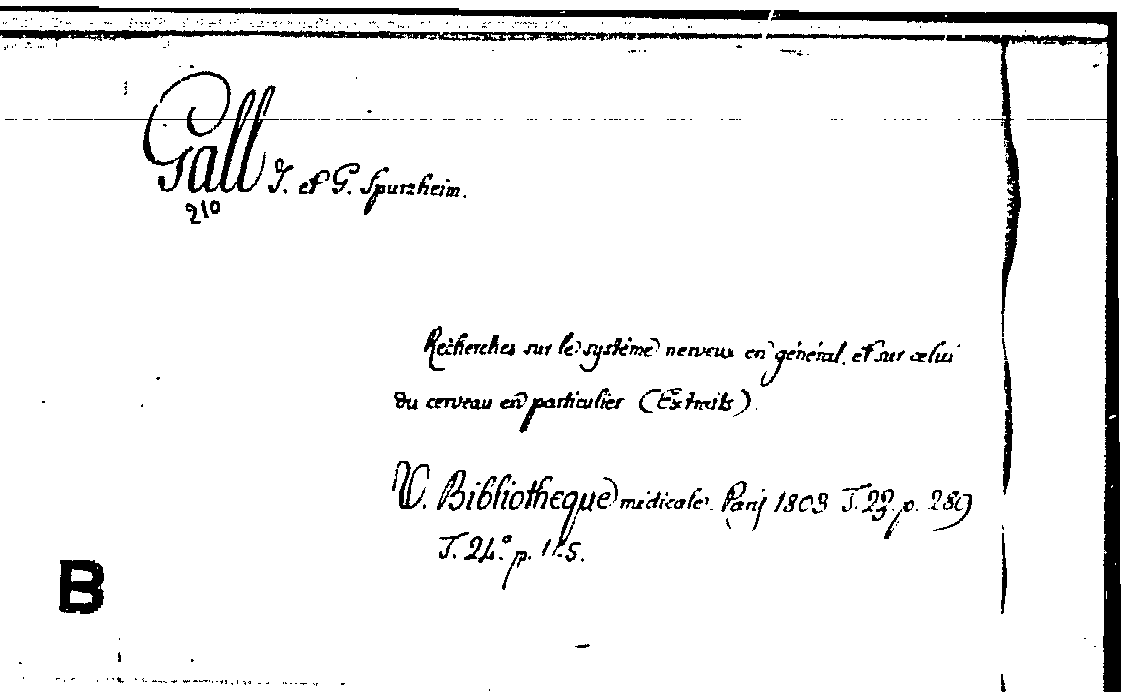 Gall J. et G. Spurzheim.
210
Recherches sur le système nerveux en général, et sur celui
du cerveau en particulier (Extraits).
V. Bibliotheque médicale. Paris 1809 T. 23. p. 289
T. 24. p. 115.
B